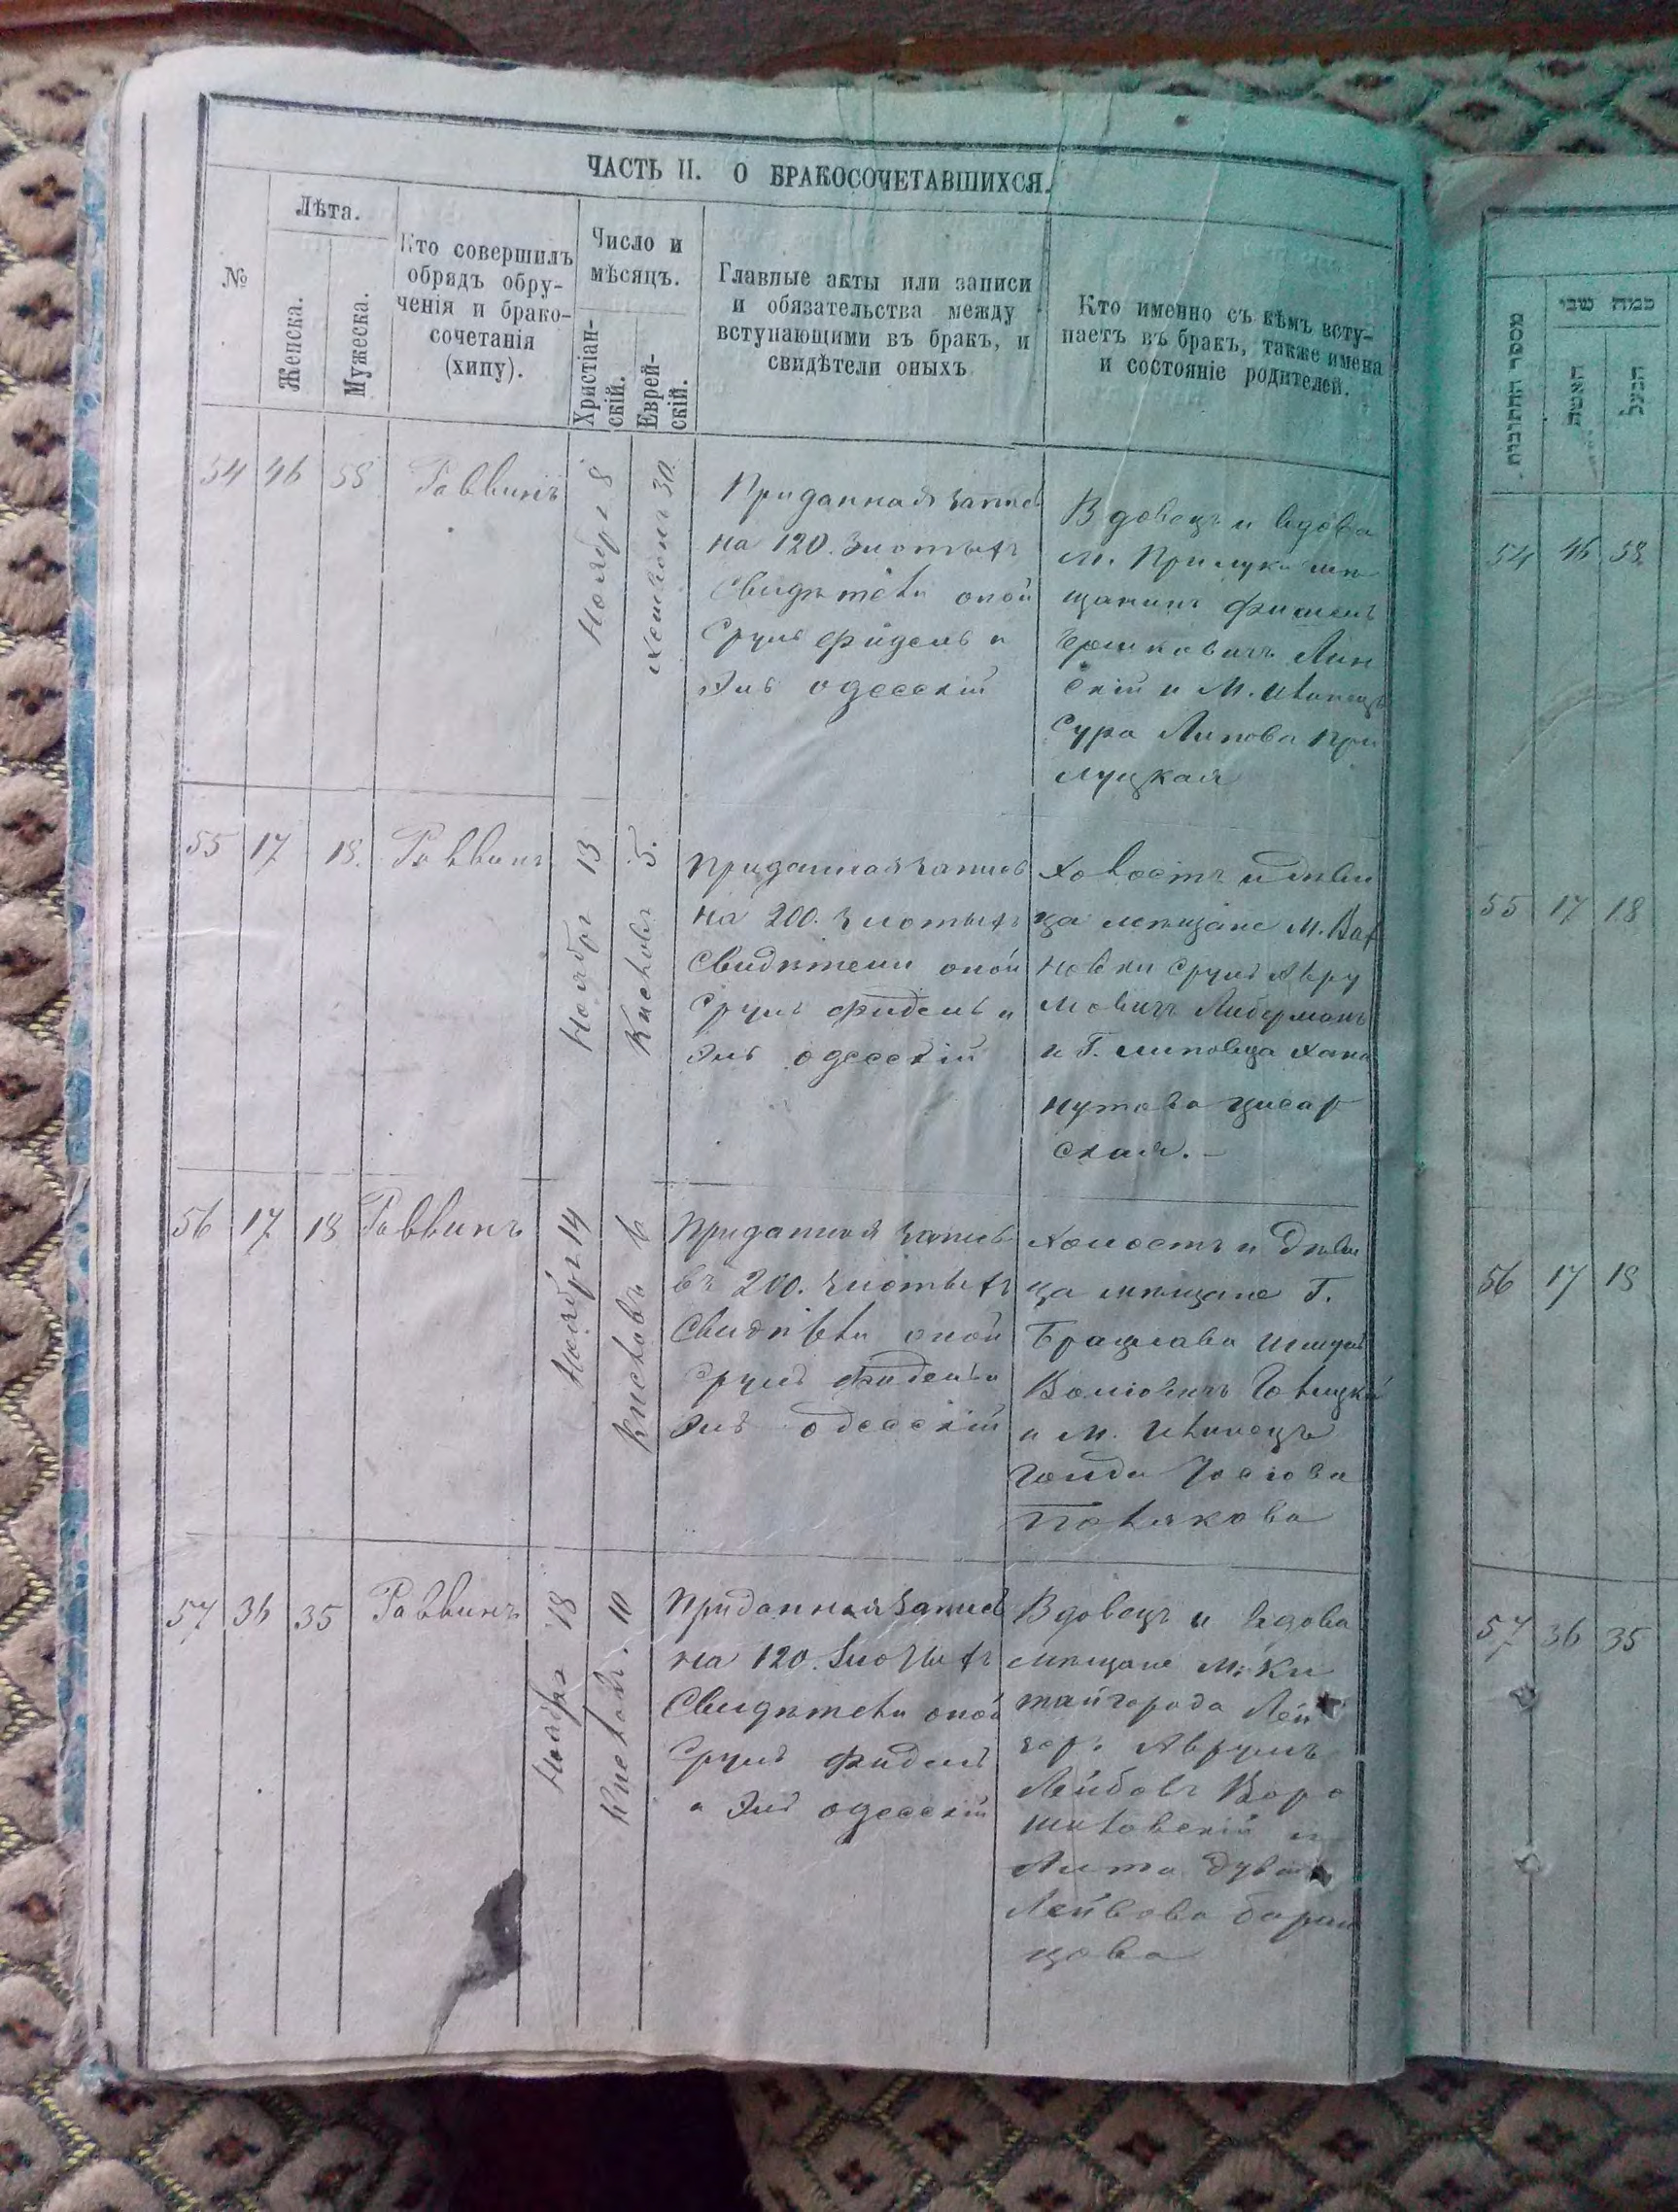 ЧАСТЬ II. О БРАКОСОЧЕТАВШИХСЯ.
№
Лѣта.
Женска.
Мужеска.
Кто совершилъ
обрядъ обру-
ченія и брако-
сочетанія
(хипу).
Число и
мѣсяцъ.
Христіан-
скій.
Еврей-
скій.
Главные акты или записи
и обязательства между
вступающими въ бракъ, и
свидѣтели оныхъ
Кто именно съ кѣмъ всту-
паетъ въ бракъ, также имена
и состояніе родителей.
54 46 58 Раввинъ
Ноября 8
Хешвонъ 30
Приданная запись
на 120. злотыхъ
Свидѣтели оной
Сруль Фидель и
Эль Одесскій
Вдовецъ и вдова
м. Прилуки мѣ
щанинъ Фишель
Лин
скій и М.
Сура При
луцкая
55 17 18. Раввинъ
Ноября 13
Кислевъ 5.
Приданная запись
на 200. злотыхъ
Свидѣтели оной
Сруль Фидель и
Эль Одесскій
Холостъ и дѣви
ца мѣщане м. Вах
новки Сруль Авру
мовичъ Либерманъ
и Г. Липовца Хана
Нутова Цисар
ская.
56 17 18 Раввинъ
Ноября 14
Кислевъ 6
Приданная запись
въ 200. злотыхъ
Свидѣтели оной
Сруль Фидель и
Эль Одесскій
Холостъ и дѣви
ца мѣщане Г.
Брацлава Шмуль
и М.
Гольда Іосіова
Полякова
57 36 35 Раввинъ
Ноября 18
Кислевъ. 10
Приданная запись
на 120. злотыхъ
Свидѣтели оной
Сруль Фидель
и Эль Одесскій
Вдовецъ и вдова
мѣщане м. Ки
тайгорода Лей
зоръ Аврумъ
Лейбовъ Воро
шиловскій и
Лейбова Баран
цова
מספר החתונות
כמה שני
האשה
הבעל
54 46 58
55 17 18
56 17 18
57 36 35